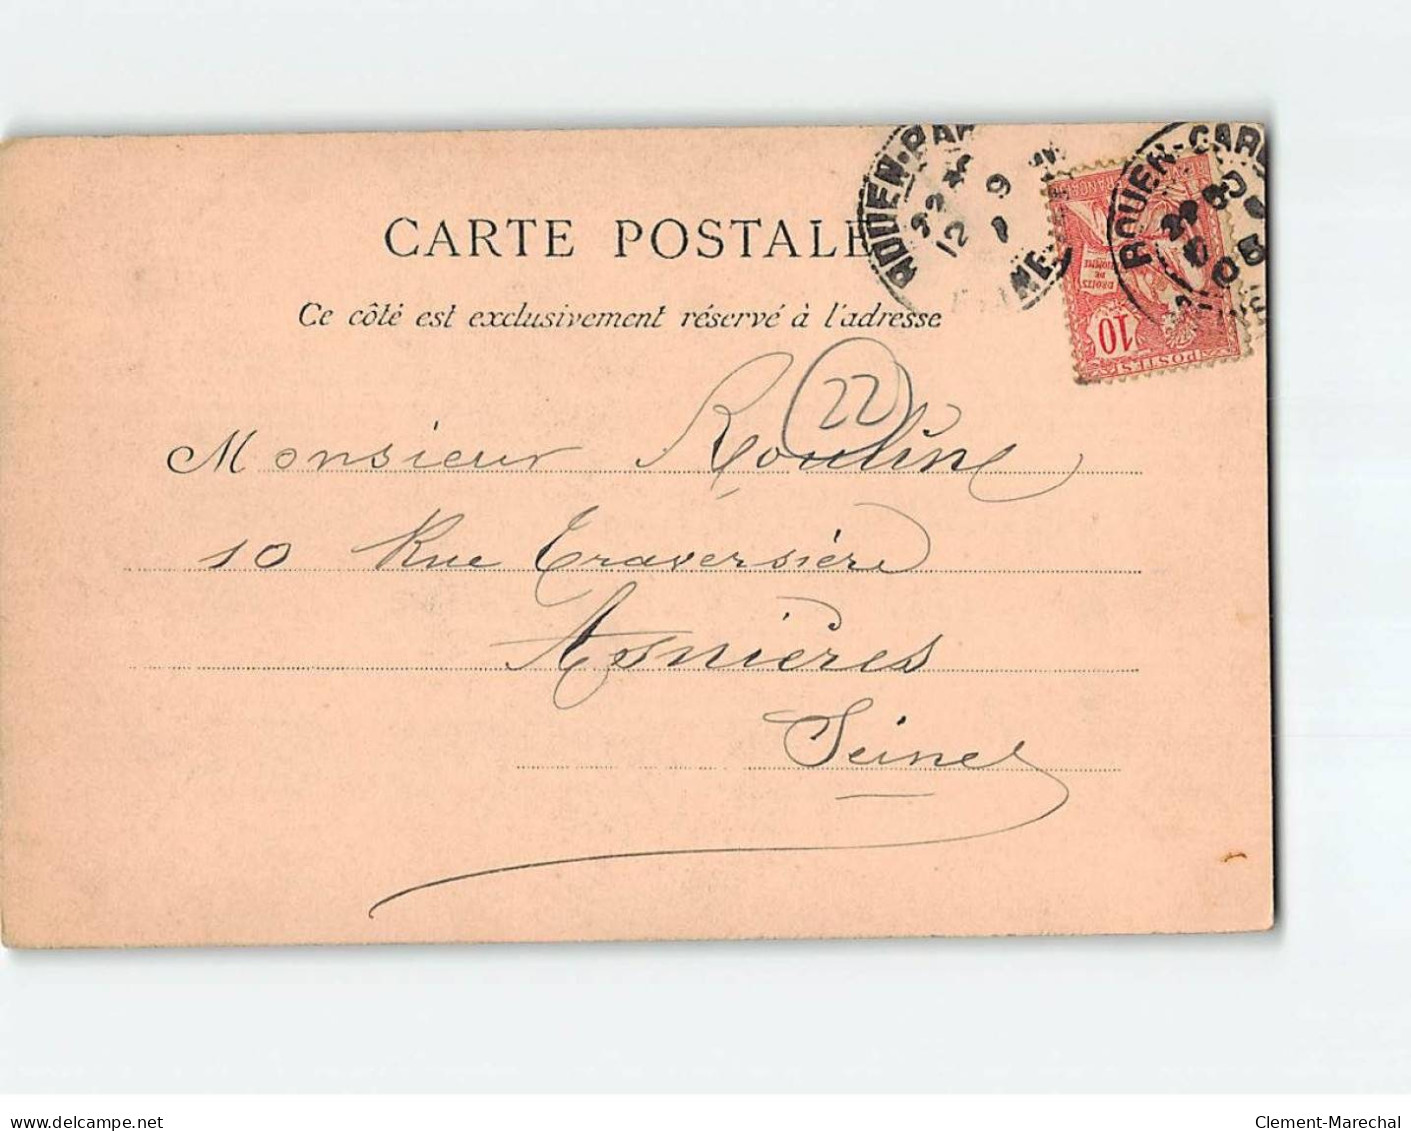 CARTE POSTALE
Ce côté est exclusivement réservé à l'adresse
ROUEN-GARE
10
POSTES
DROITS
DE
22
Monsieur Rouline
10 Rue Traversière
Asnières
Seine
www.delcampe.net
Clement-Marechal